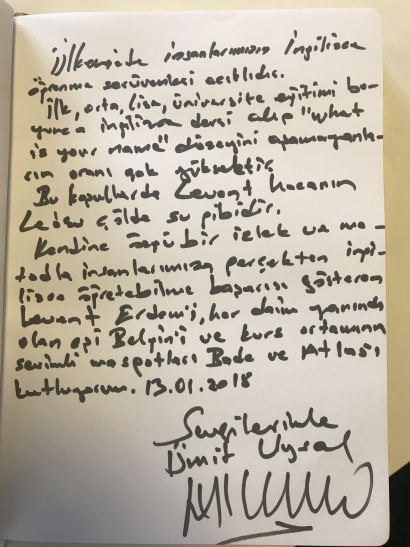 Ülkemizde insanlarımızın İngilizce
öğrenme serüvenleri acıklıdır.
İlk, orta, lise, üniversite eğitimi bo-
yunca İngilizce dersi alıp "What
is your name" düzeyini aşamayanla-
rın oranı çok yüksektir.
Bu koşullarda Levent Hocanın
çölde su gibidir.
Kendine özgü bir izlek ve me-
todla insanlarımıza gerçekten ingi-
lizce öğretebilme başarısı gösteren
Levent Erdem'i, her daim yanında
olan eşi Belgin'i ve kurs ortamının
sevimli maspotları Bade ve Atlas'ı
kutluyorum. 13.01.2018
Sevgilerimle
Ümit Uysal